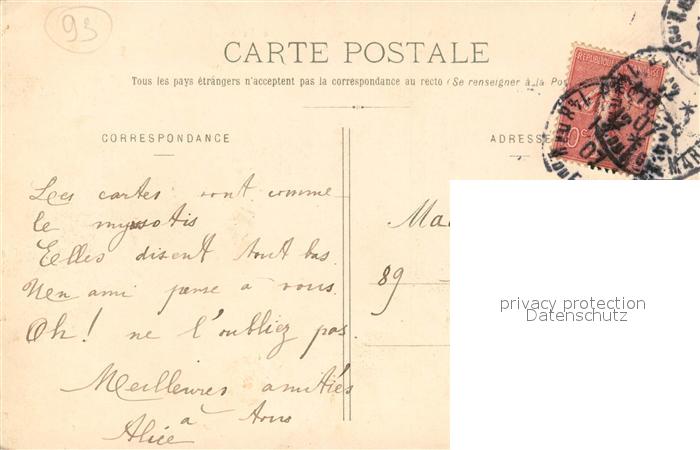 93
CARTE POSTALE
Tous les pays étrángers n'acceptent pas la correspondance au recto (Se renseigner à la Pos
CORRESPONDANCE
ADRESSE
Les cartes sont comme
le myosotis
Elles disent tout bas
Un ami pense à vous.
Oh! ne l'oubliez pas.
Meilleures amitiés
à tous
Alice
Ma
89
privacy protection
Datenschutz